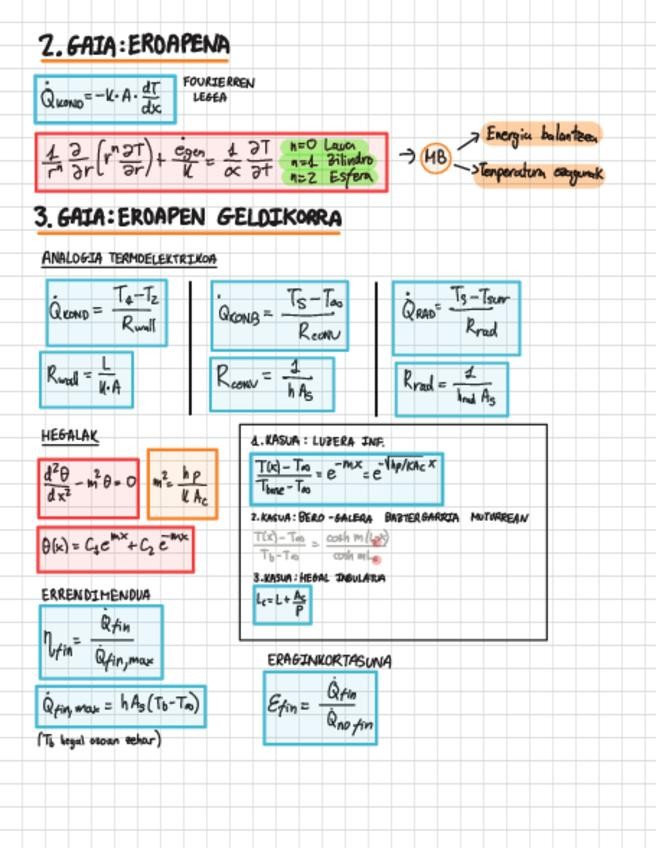 2. GAIA: EROAPENA
Q̇KOND = -K·A·dT/dx
FOURIERREN LEGEA
1/rⁿ ∂/∂r (rⁿ ∂T/∂r) + ėgen/K = 1/α ∂T/∂t
n=0 Laua
n=1 Zilindro
n=2 Esfera
→ MB
Energia balantzea
Tenperatura ezagunak
3. GAIA: EROAPEN GELDIKORRA
ANALOGIA TERMOELEKTRIKOA
Q̇KOND = (T1-T2)/Rwall
Rwall = L/(K·A)
Q̇KONB = (Ts-T∞)/Rconv
Rconv = 1/(h As)
Q̇RAD = (Ts-Tsurr)/Rrad
Rrad = 1/(hrad As)
HEGALAK
d²θ/dx² - m²θ = 0
m² = hp/(K Ac)
θ(x) = C1e^mx + C2e^-mx
1. KASUA: LUZERA INF.
(T(x)-T∞)/(Tbase-T∞) = e^-mx = e^-√(hp/KAc) x
2. KASUA: BERO-GALERA BAZTERGARRIA MUTURREAN
(T(x)-T∞)/(Tb-T∞) = cosh m(L-x)/cosh mL
3. KASUA: HEGAL INSULATUA
Lc = L + Ac/P
ERRENDIMENDUA
ηfin = Q̇fin/Q̇fin,max
Q̇fin,max = h As (Tb-T∞)
(Tb hegal osoan zehar)
ERAGINKORTASUNA
Ɛfin = Q̇fin/Q̇no fin